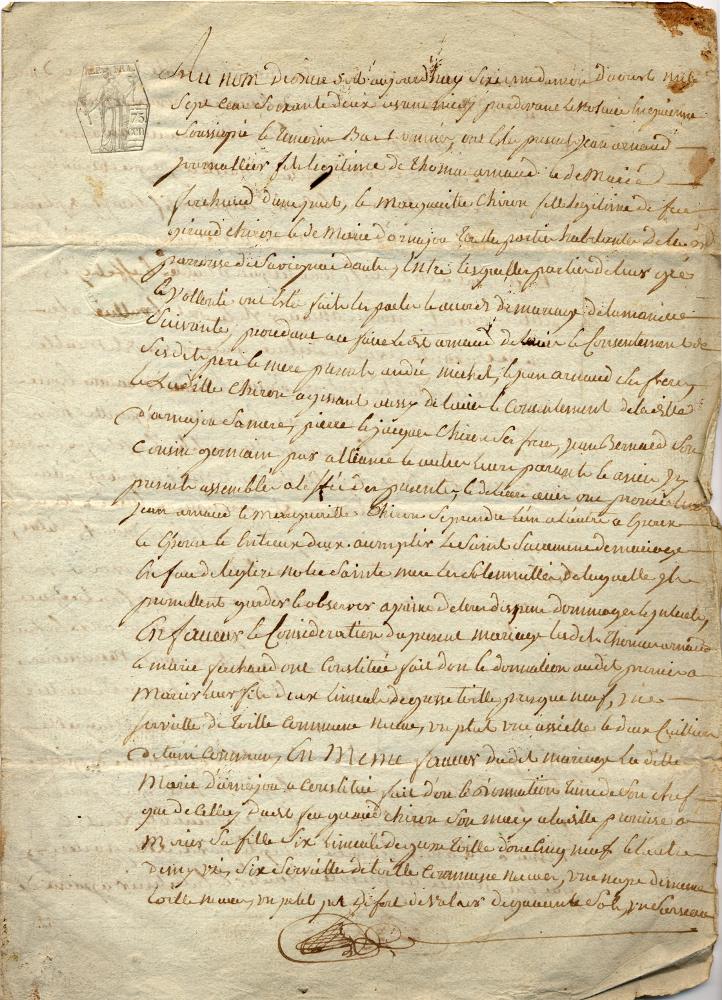 REP. FRA.
75
Au nom de dieu soit aujourdhuy sixieme du mois d'aoust mil
sept cens soixante deux avant midy par devant le notaire
soussigné le temoins bas nommes, ont esté presant Jean arnaud
journallier fils legitime de Thomas arnaud le de Marie
fechaud d'une part, le Margueritte Chiron fille legitime de feu
giraud chiron le de Marie d'arnajou
parroisse de Savignac entre lesquelles partie de leurs gré
le vollonté ont esté fait les pacte le accord de mariage de la maniere
Suivante, procedant a ce faire ledit arnaud de l'avis le Consentement de
Sesdits pere le mere presant andré michel, le jean arnaud Ses freres
le Laditte Chiron agissant aussy de l'avis le Consentement de laditte
d'arnajou Sa mere, pierre le jacques Chiron Ses freres, Jean Bernard Son
Cousin germain par alliance le autres leurs parants le amis Jcy
presant assemblés a l'effet des presentes, le
jean arnaud le Marguerite Chiron Se prendre l'un a l'autre
le entre eux deux acomplir le Saint Sacrement de mariage
En face de leglize notre Sainte mere les Solennittés de laquelle
promettent garder le observer a paine de tous depens dommages le interets,
En faveur le Consideration du present mariage lesdits Thomas arnaud
le marie fechaud ont Constitué fait don le donnation audit promis a
Marier leur fils deux linseuls de grosse toille presque neuf, une
serviette de toille commune neuve, un plat une assiette le deux Cuilliers
d'etain commun, En Meme faveur dudit mariage laditte
Marie d'arnajou a Constitué fait don le donnation tant de Son chef
que de Celluy dudit feu giraud chiron Son mary a laditte promise a
Marier Sa fille Six linseuls de grosse toille dont Cinq neuf le l'autre
demy uzé, Six Serviettes de toille Commune neuves, une nape de meme
toille neuve, un petit pot de fer de valeur de quarante Sols,